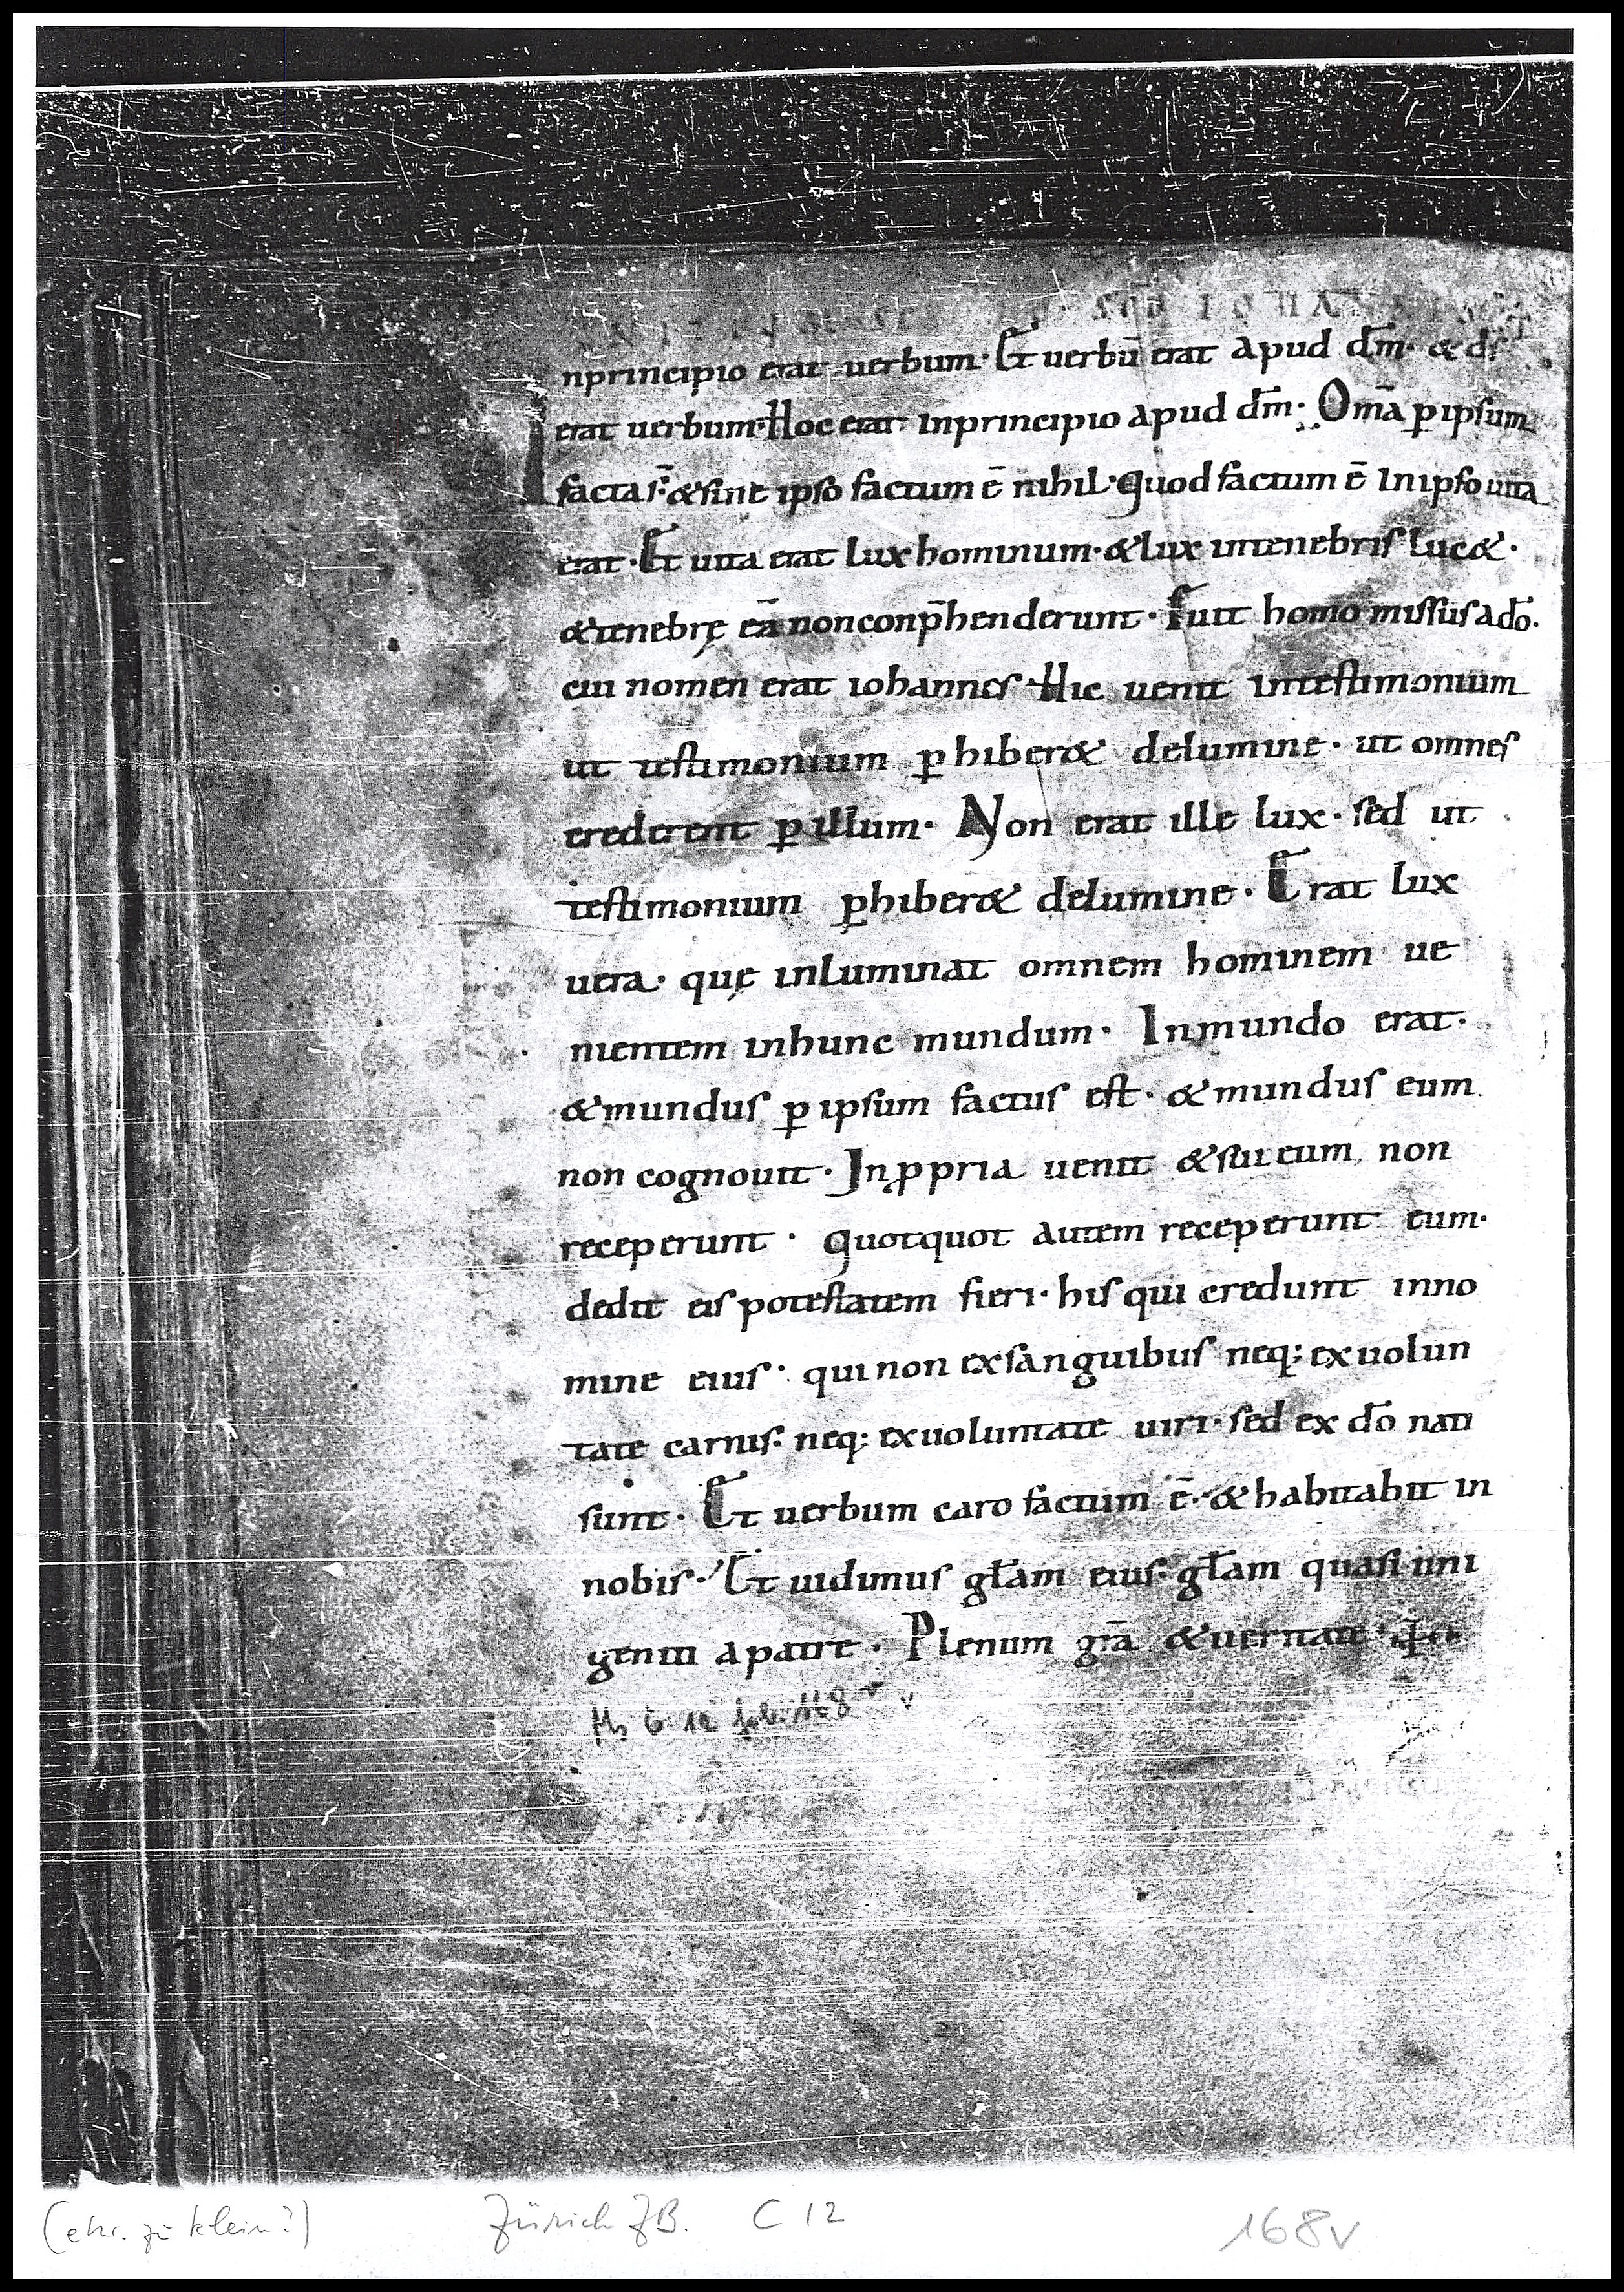 SCD IOHANN
Inprincipio erat uerbum· Et uerbū erat apud dm̄· & ds̄
erat uerbum· Hoc erat inprincipio apud dm̄· Omā ꝑ ipsum
facta s̄· & sine ipso factum ē nihil· Quod factum ē Inipso uita
erat· Et uita erat lux hominum· & lux intenebris lucet·
& tenebrę eā non conp̄henderunt· Fuit homo missus a dō·
cui nomen erat iohannes· Hic uenit intestimonium
ut testimonium ꝑhiberet delumine· ut omnes
crederent ꝑ illum· Non erat ille lux· sed ut
testimonium ꝑhiberet delumine· Erat lux
uera· quę inluminat omnem hominem ue
nientem inhunc mundum· Inmundo erat·
& mundus ꝑ ipsum factus est· & mundus eum
non cognouit· In ꝓpria uenit & sui eum non
receperunt· Quotquot autem receperunt eum·
dedit eis potestatem fieri· his qui credunt inno
mine eius· qui non exsanguibus neq; exuolun
tate carnis· neq; exuoluntate uiri· sed ex dō nati
sunt· Et uerbum caro factum ē· & habitabit in
nobis· Et uidimus gl̄am eius· gl̄am quasi uni
geniti apatre· Plenum grā & ueritate
Ms C 12 fol. 168 v
(etw. zu klein?) Zürich ZB. C 12 168v